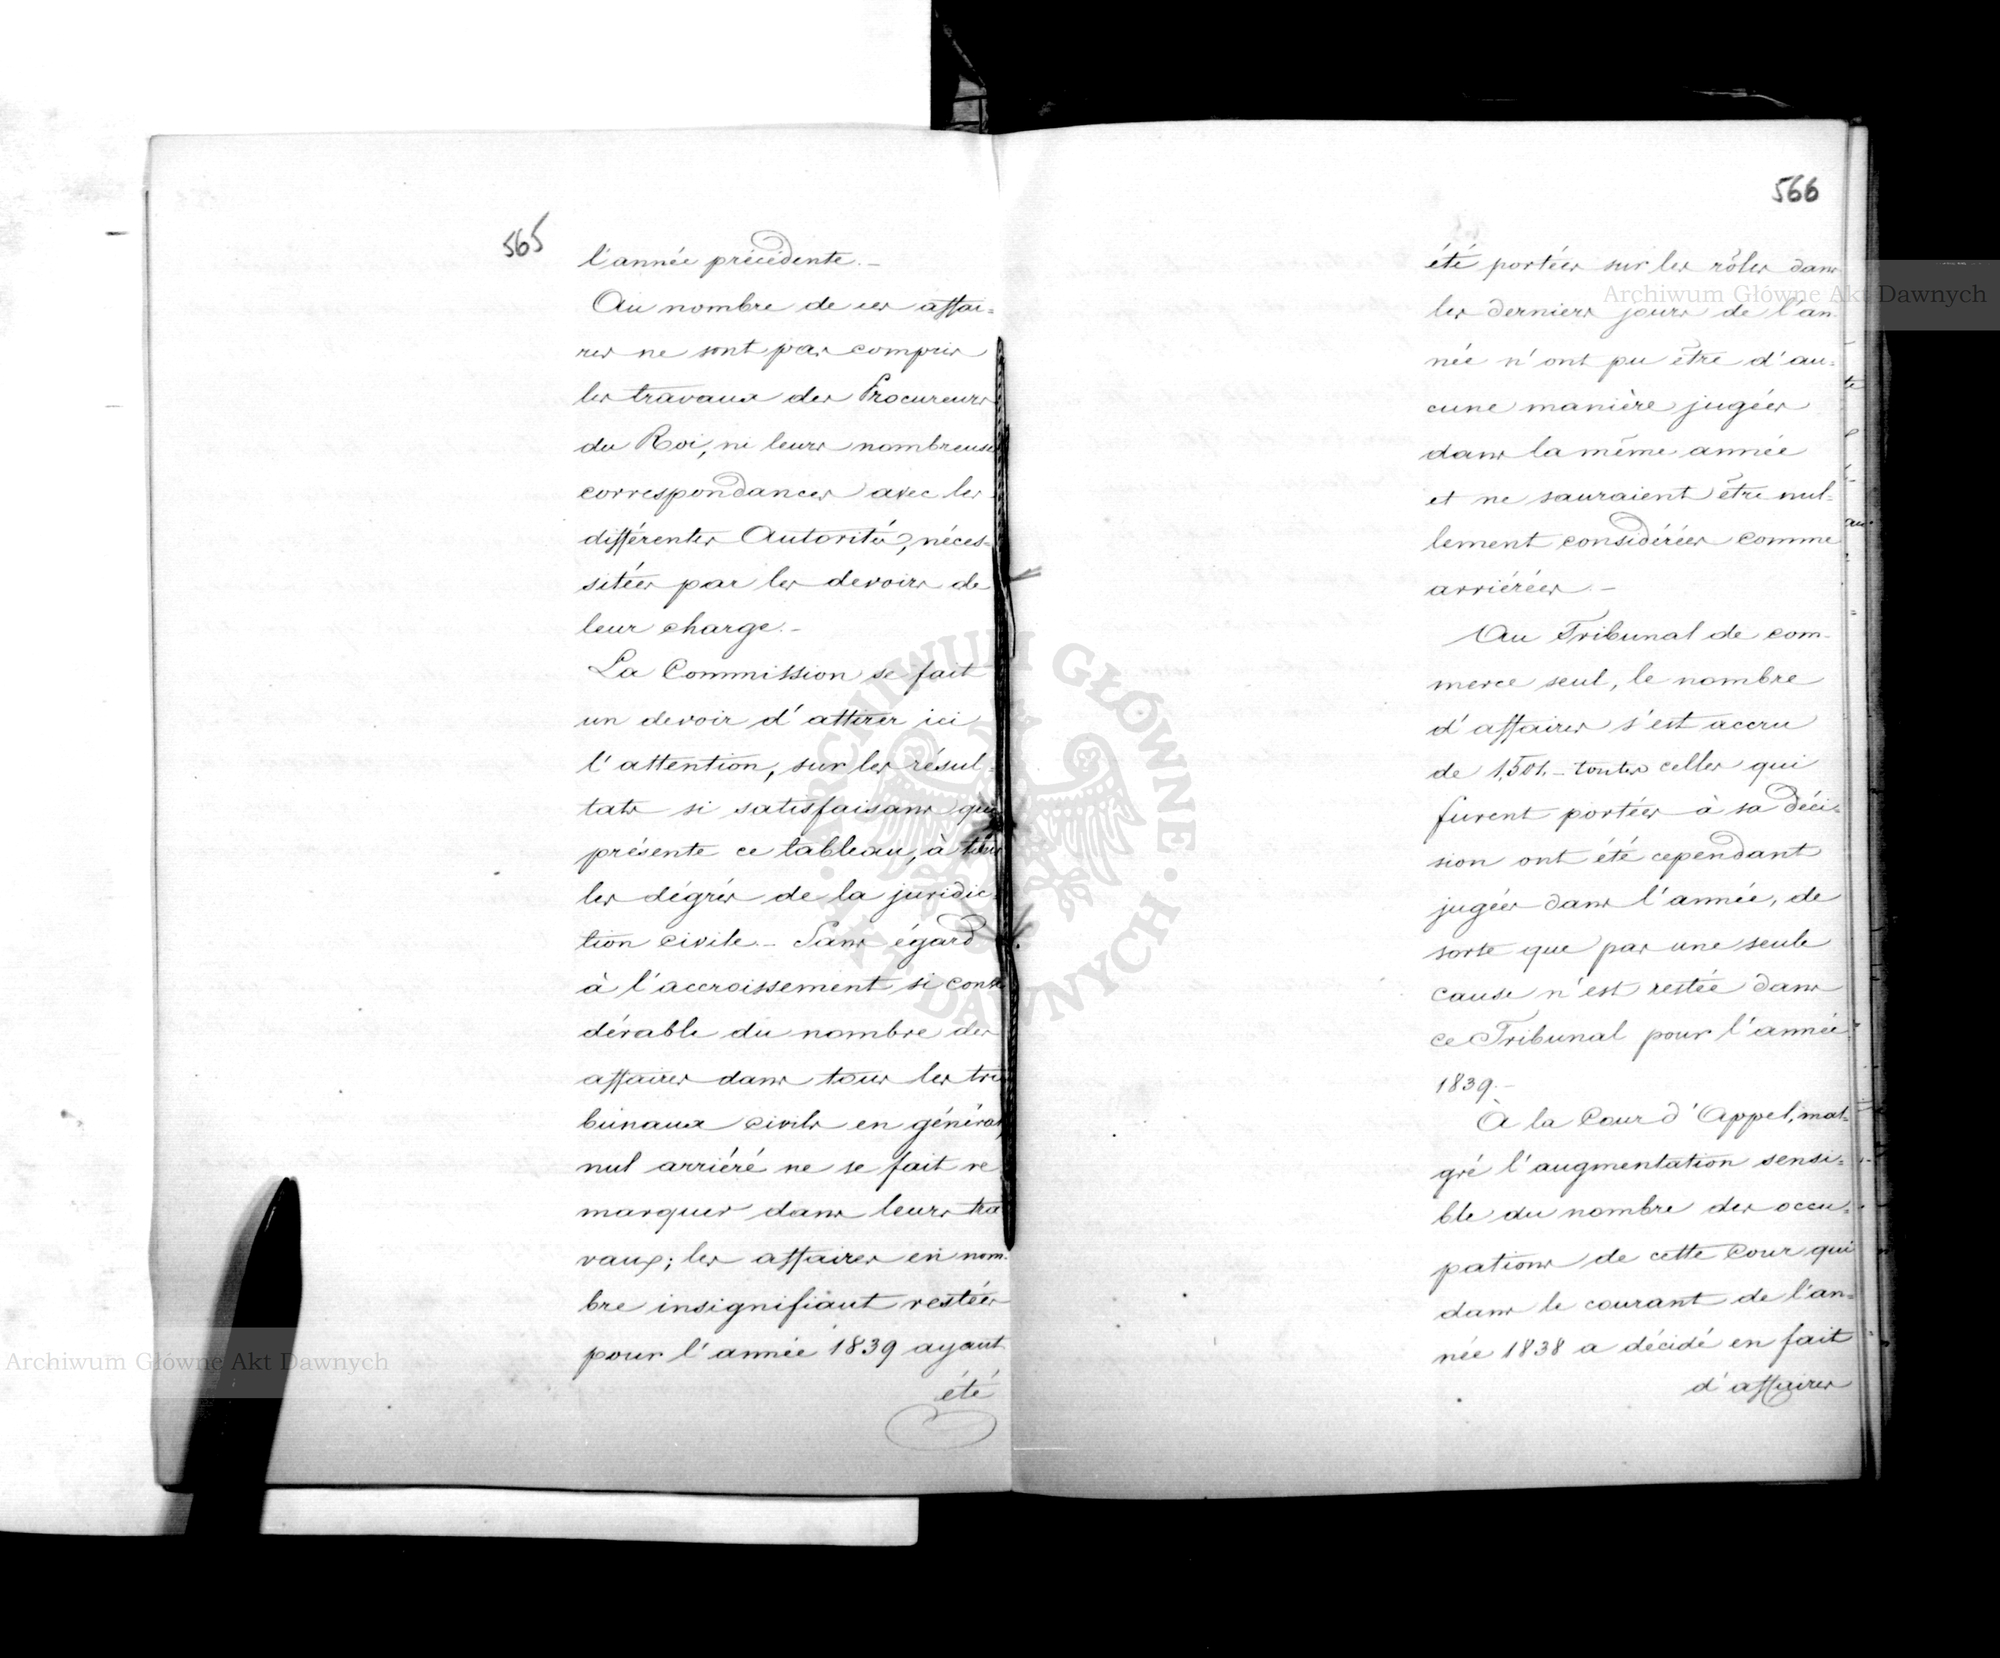 565
l'année précédente.-
Au nombre de ces affai=
res ne sont pas compris
les travaux des Procureurs
du Roi, ni leurs nombreuses
correspondances avec les
différentes Autorités, néces=
sitées par les devoirs de
leur charge.-
La Commission se fait
un devoir d'attirer ici
l'attention, sur les résul=
tats si satisfaisans que
présente ce tableau, à tous
les dégrés de la juridic=
tion civile.- Sans égard
à l'accroissement si consi
dérable du nombre des
affaires dans tous les tri
bunaux civils en général,
nul arriéré ne se fait re
marquer dans leurs tra
vaux; les affaires en nom=
bre insignifiant restées
pour l'année 1839 ayant
été
566
été portées sur les rôles dans
les derniers jours de l'an=
née n'ont pu être d'au=
cune manière jugées
dans la même année
et ne sauraient être nul=
lement considérées comme
arriérées.-
Au Tribunal de com=
merce seul, le nombre
d'affaires s'est accru
de 1,501.- toutes celles qui
furent portées à sa déci=
sion ont été cependant
jugées dans l'année, de
sorte que pas une seule
cause n'est restée dans
ce Tribunal pour l'année
1839.-
À la Cour d'Appel, mal=
gré l'augmentation sensi=
ble du nombre des occu=
pations de cette Cour qui
dans le courant de l'an=
née 1838 a décidé en fait
d'affaires
Archiwum Główne Akt Dawnych
ARCHIWUM GŁÓWNE
AKT DAWNYCH
Archiwum Główne Akt Dawnych